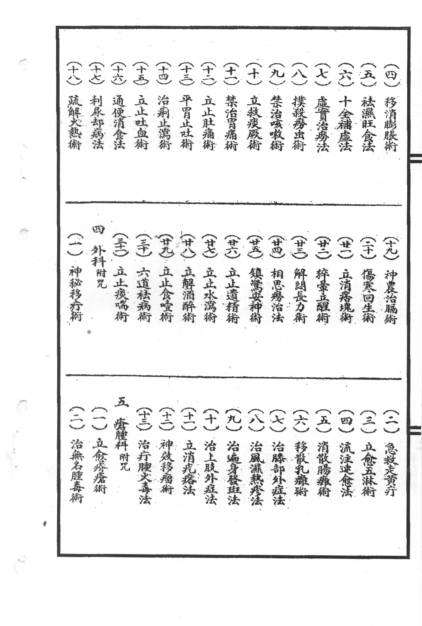 (四) 移消膨脹術
(五) 祛濕旺食法
(六) 十全補虛法
(七) 虛實治癆法
(八) 撲殺癆虫術
(九) 禁治咳嗽術
(十) 立救痰厥術
(十一) 禁治胃痛術
(十二) 立止肚痛術
(十三) 平胃止吐術
(十四) 治痢止瀉術
(十五) 立止吐血術
(十六) 通便消食法
(十七) 利尿却病法
(十八) 疏解火熱術
(十九) 神農治腸術
(二十) 傷寒回生術
(廿一) 立消痞塊術
(廿二) 猝暈立醒術
(廿三) 解胡長力術
(廿四) 相思癆治法
(廿五) 鎮驚安神術
(廿六) 立止遺精術
(廿七) 立止水瀉術
(廿八) 立解酒醉術
(廿九) 立止食噎術
(三十) 六道祛病術
(三十一) 立止痰喘術
四 外科附咒
(一) 神秘移疔術
(二) 急救走黃疔
(三) 立愈五淋術
(四) 流注速愈法
(五) 消散腸癰術
(六) 移散乳癰術
(七) 治膝部外症法
(八) 治風濕熱疹法
(九) 治遍身發斑法
(十) 治上肢外症法
(十一) 立消疙瘩法
(十二) 神效移瘤術
(十三) 治疔腫火毒法
五 瘡腫科附咒
(一) 立愈疥瘡術
(二) 治無名腫毒術